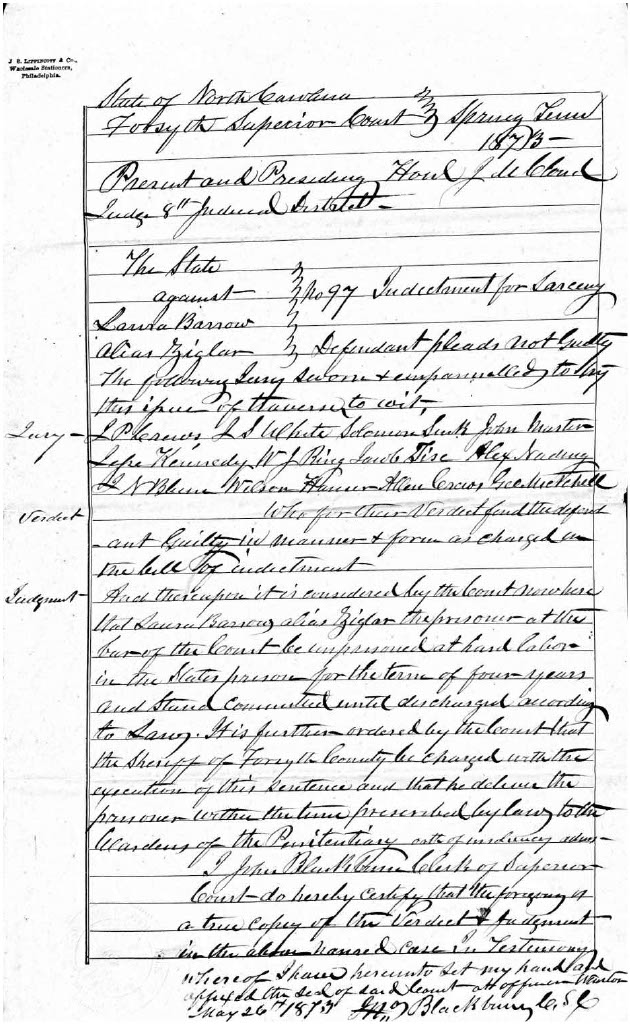 J. B. LIPPINCOTT & Co.,
Wholesale Stationers,
Philadelphia.
State of North Carolina
Forsyth Superior Court } Spring Term
1873 -
Present and Presiding Honl J M Cloud
Judge 8th Judicial District -
The State
against - No 97 Indictment for Larceny
Laura Barrow
alias Ziglar Defendant pleads not Guilty
The following Jury sworn & empannelled to try
this issue of traverse to wit,
Jury - J P Crews J S White Solomon John Martin
Kennedy W J Ring Jacob Tise Alex Nading
N Blum Wilson Allen Crews Geo Mitchell
Verdict Who for their Verdict find the defend
- ant Guilty in manner & form as charged in
the bill of indictment
Judgment - And thereupon it is considered by the Court now here
that Laura Barrow alias Ziglar the prisoner at the
bar of the Court be imprisoned at hard labor -
in the States prison for the term of four years
and Stand Committed until discharged according
to Law. It is further ordered by the Court that
the Sheriff of Forsyth County be charged with the
execution of this Sentence and that he deliver the
prisoner within the time prescribed by law to the
Wardens of the Penitentiary oath of insolvency
I John Blackburn Clerk of Superior
Court do hereby certify that the foregoing is
a true copy of the Verdict & Judgment
in the above named case In Testimony
whereof I have hereunto set my hand and
affixed the seal of said Court at office in Winston
May 26th 1873 Jno Blackburn C.S.C